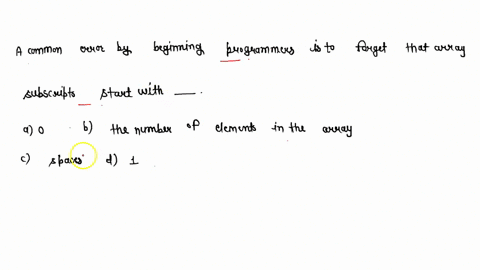 A common error by beginning programmers is to forget that array
subscripts start with ___.
a) 0 b) the number of elements in the array
c) spaces d) 1